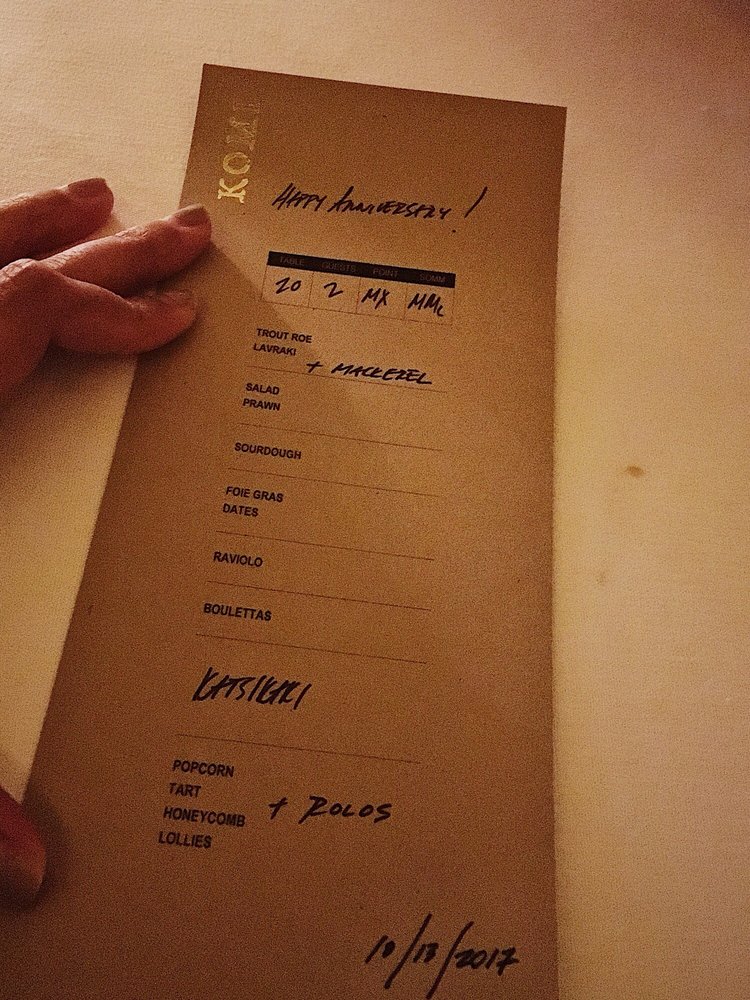 KOMI
HAPPY ANNIVERSARY!
TABLE GUESTS POINT SOMM
20 2 MX MML
TROUT ROE
LAVRAKI
+ MACKEREL
SALAD
PRAWN
SOURDOUGH
FOIE GRAS
DATES
RAVIOLO
BOULETTAS
KATSIKAKI
POPCORN
TART
HONEYCOMB + ROLOS
LOLLIES
10/13/2017